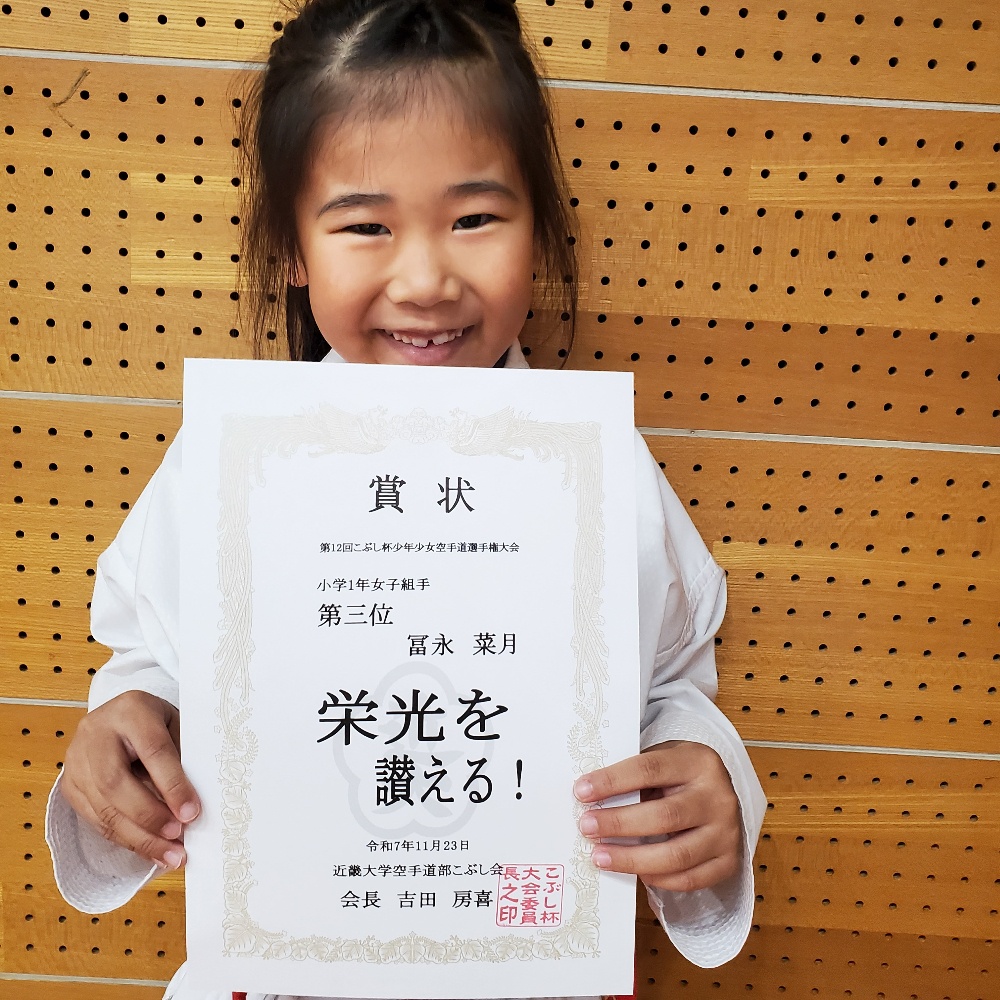 賞状
第12回こぶし杯少年少女空手道選手権大会
小学1年女子組手
第三位
冨永 菜月
栄光を
讃える!
令和7年11月23日
近畿大学空手道部こぶし会
会長 吉田 房喜
こぶし杯
大会委員
長之印